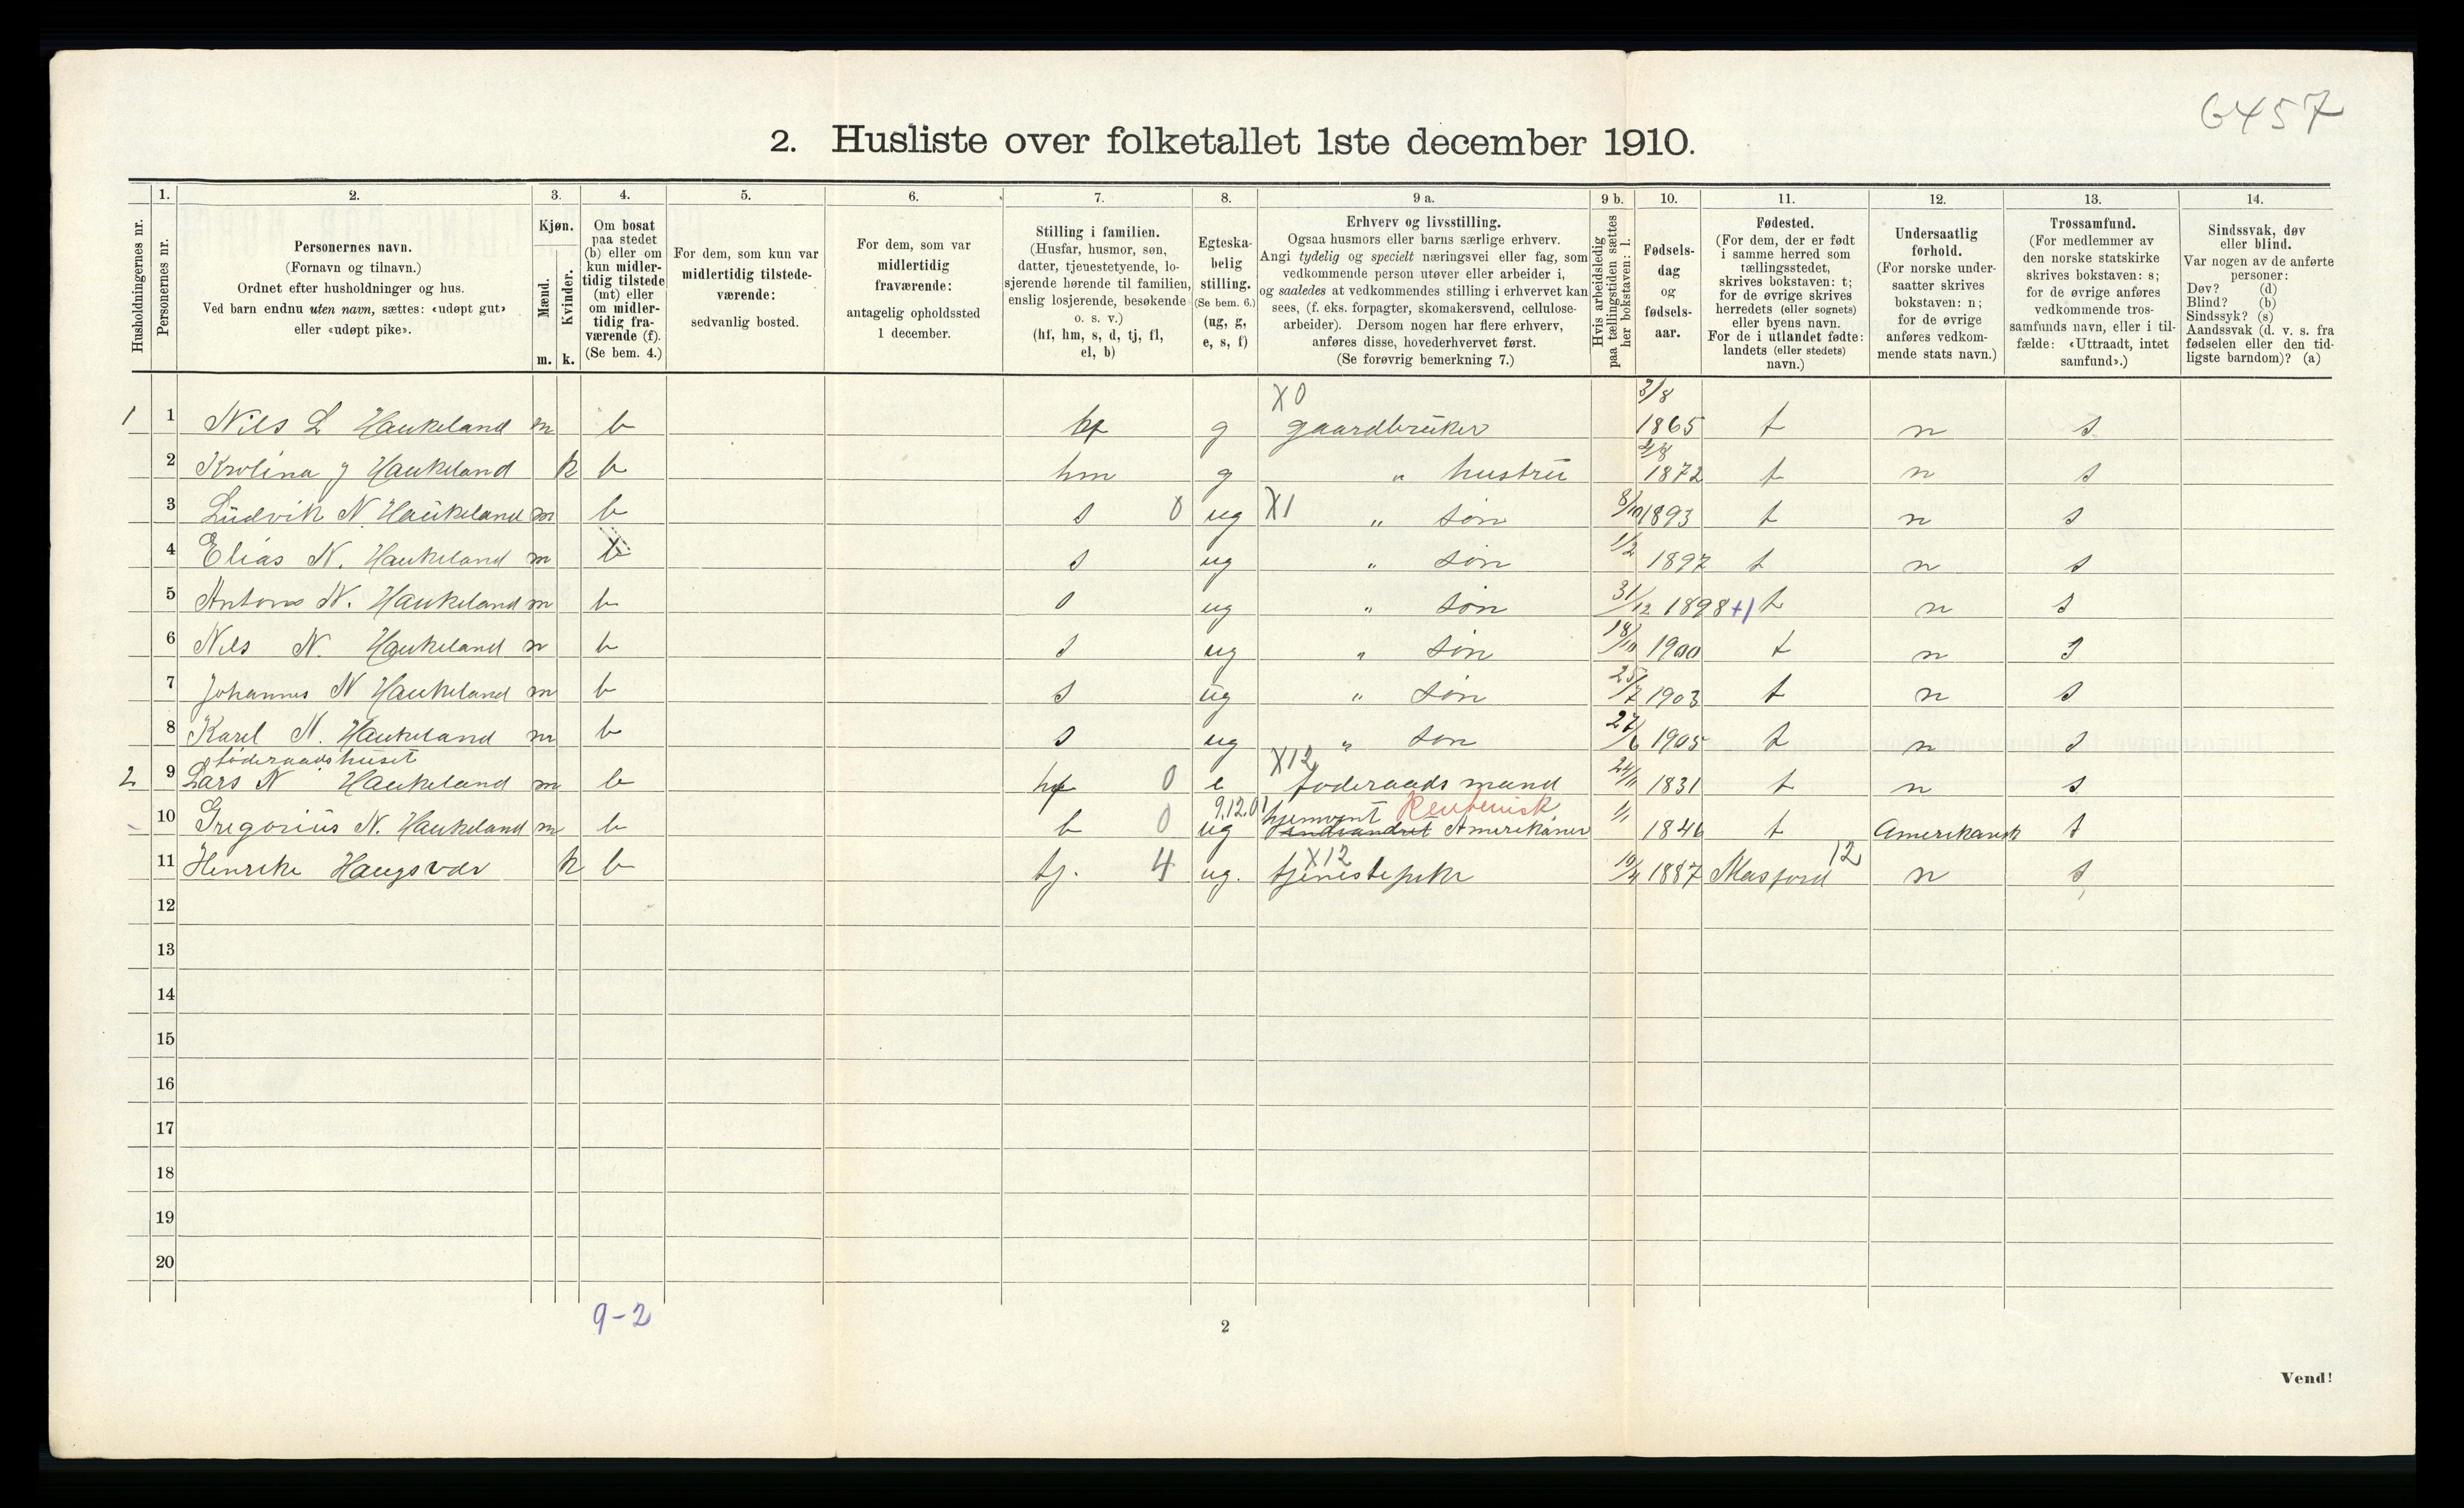 6457
2. Husliste over folketallet 1ste december 1910.
Husholdningernes nr.
1.
Personernes nr.
2.
Personernes navn.
(Fornavn og tilnavn.)
Ordnet efter husholdninger og hus.
Ved barn endnu uten navn, sættes: «udøpt gut»
eller «udøpt pike».
3.
Kjøn.
Mænd.
Kvinder.
m. k.
4.
Om bosat
paa stedet
(b) eller om
kun midler-
tidig tilstede
(mt) eller
om midler-
tidig fra-
værende (f).
(Se bem. 4.)
5.
For dem, som kun var
midlertidig tilstede-
værende:
sedvanlig bosted.
6.
For dem, som var
midlertidig
fraværende:
antagelig opholdssted
1 december.
7.
Stilling i familien.
(Husfar, husmor, søn,
datter, tjenestetyende, lo-
sjerende hørende til familien,
enslig losjerende, besøkende
o. s. v.)
(hf, hm, s, d, tj, fl,
el, b)
8.
Egteska-
belig
stilling.
(Se bem. 6.)
(ug, g,
e, s, f)
9 a.
Erhverv og livsstilling.
Ogsaa husmors eller barns særlige erhverv.
Angi tydelig og specielt næringsvei eller fag, som
vedkommende person utøver eller arbeider i,
og saaledes at vedkommendes stilling i erhvervet kan
sees, (f. eks. forpagter, skomakersvend, cellulose-
arbeider). Dersom nogen har flere erhverv,
anføres disse, hovederhvervet først.
(Se forøvrig bemerkning 7.)
9 b.
Hvis arbeidsledig
paa tællingstiden sættes
her bokstaven: l.
10.
Fødsels-
dag
og
fødsels-
aar.
11.
Fødested.
(For dem, der er født
i samme herred som
tællingsstedet,
skrives bokstaven: t;
for de øvrige skrives
herredets (eller sognets)
eller byens navn.
For de i utlandet fødte:
landets (eller stedets)
navn.)
12.
Undersaatlig
forhold.
(For norske under-
saatter skrives
bokstaven: n;
for de øvrige
anføres vedkom-
mende stats navn.)
13.
Trossamfund.
(For medlemmer av
den norske statskirke
skrives bokstaven: s;
for de øvrige anføres
vedkommende tros-
samfunds navn, eller i til-
fælde: «Uttraadt, intet
samfund».)
14.
Sindssvak, døv
eller blind.
Var nogen av de anførte
personer:
Døv? (d)
Blind? (b)
Sindssyk? (s)
Aandssvak (d. v. s. fra
fødselen eller den tid-
ligste barndom)? (a)
X0 3/8
1 1 Nils L Haukeland m b hf g gaardbruker 1865 t n s
2 Krolina J Haukeland k b hm g " hustru 1872 t n s
3 Ludvik N. Haukeland m b s 0 ug X1 " søn 8/10 1893 t n s
4 Elias N. Haukeland m b s ug " søn 1/2 1897 t n s
5 Anton N. Haukeland m b s ug " søn 31/12 1898 +1 t n s
6 Nils N. Haukeland m b s ug " søn 18/10 1900 t n s
7 Johannes N Haukeland m b s ug " søn 25/7 1903 t n s
8 Karel N. Haukeland m b s ug " søn 27/6 1905 t n s
føderaadshuset X12
2 9 Lars N Haukeland m b hf 0 e føderaads mand 24/11 1831 t n s
9,12.01 hjemvent
10 Gregorius N. Haukeland m b b 0 ug indvandret Amerikaner 1/1 1846 t Amerikansk s
X12 12
11 Henrike Haugsvær k b tj. 4 ug. tjenestepike 19/4 1887 Masfjord n s
12
13
14
15
16
17
18
19
20
9-2
2
Vend!